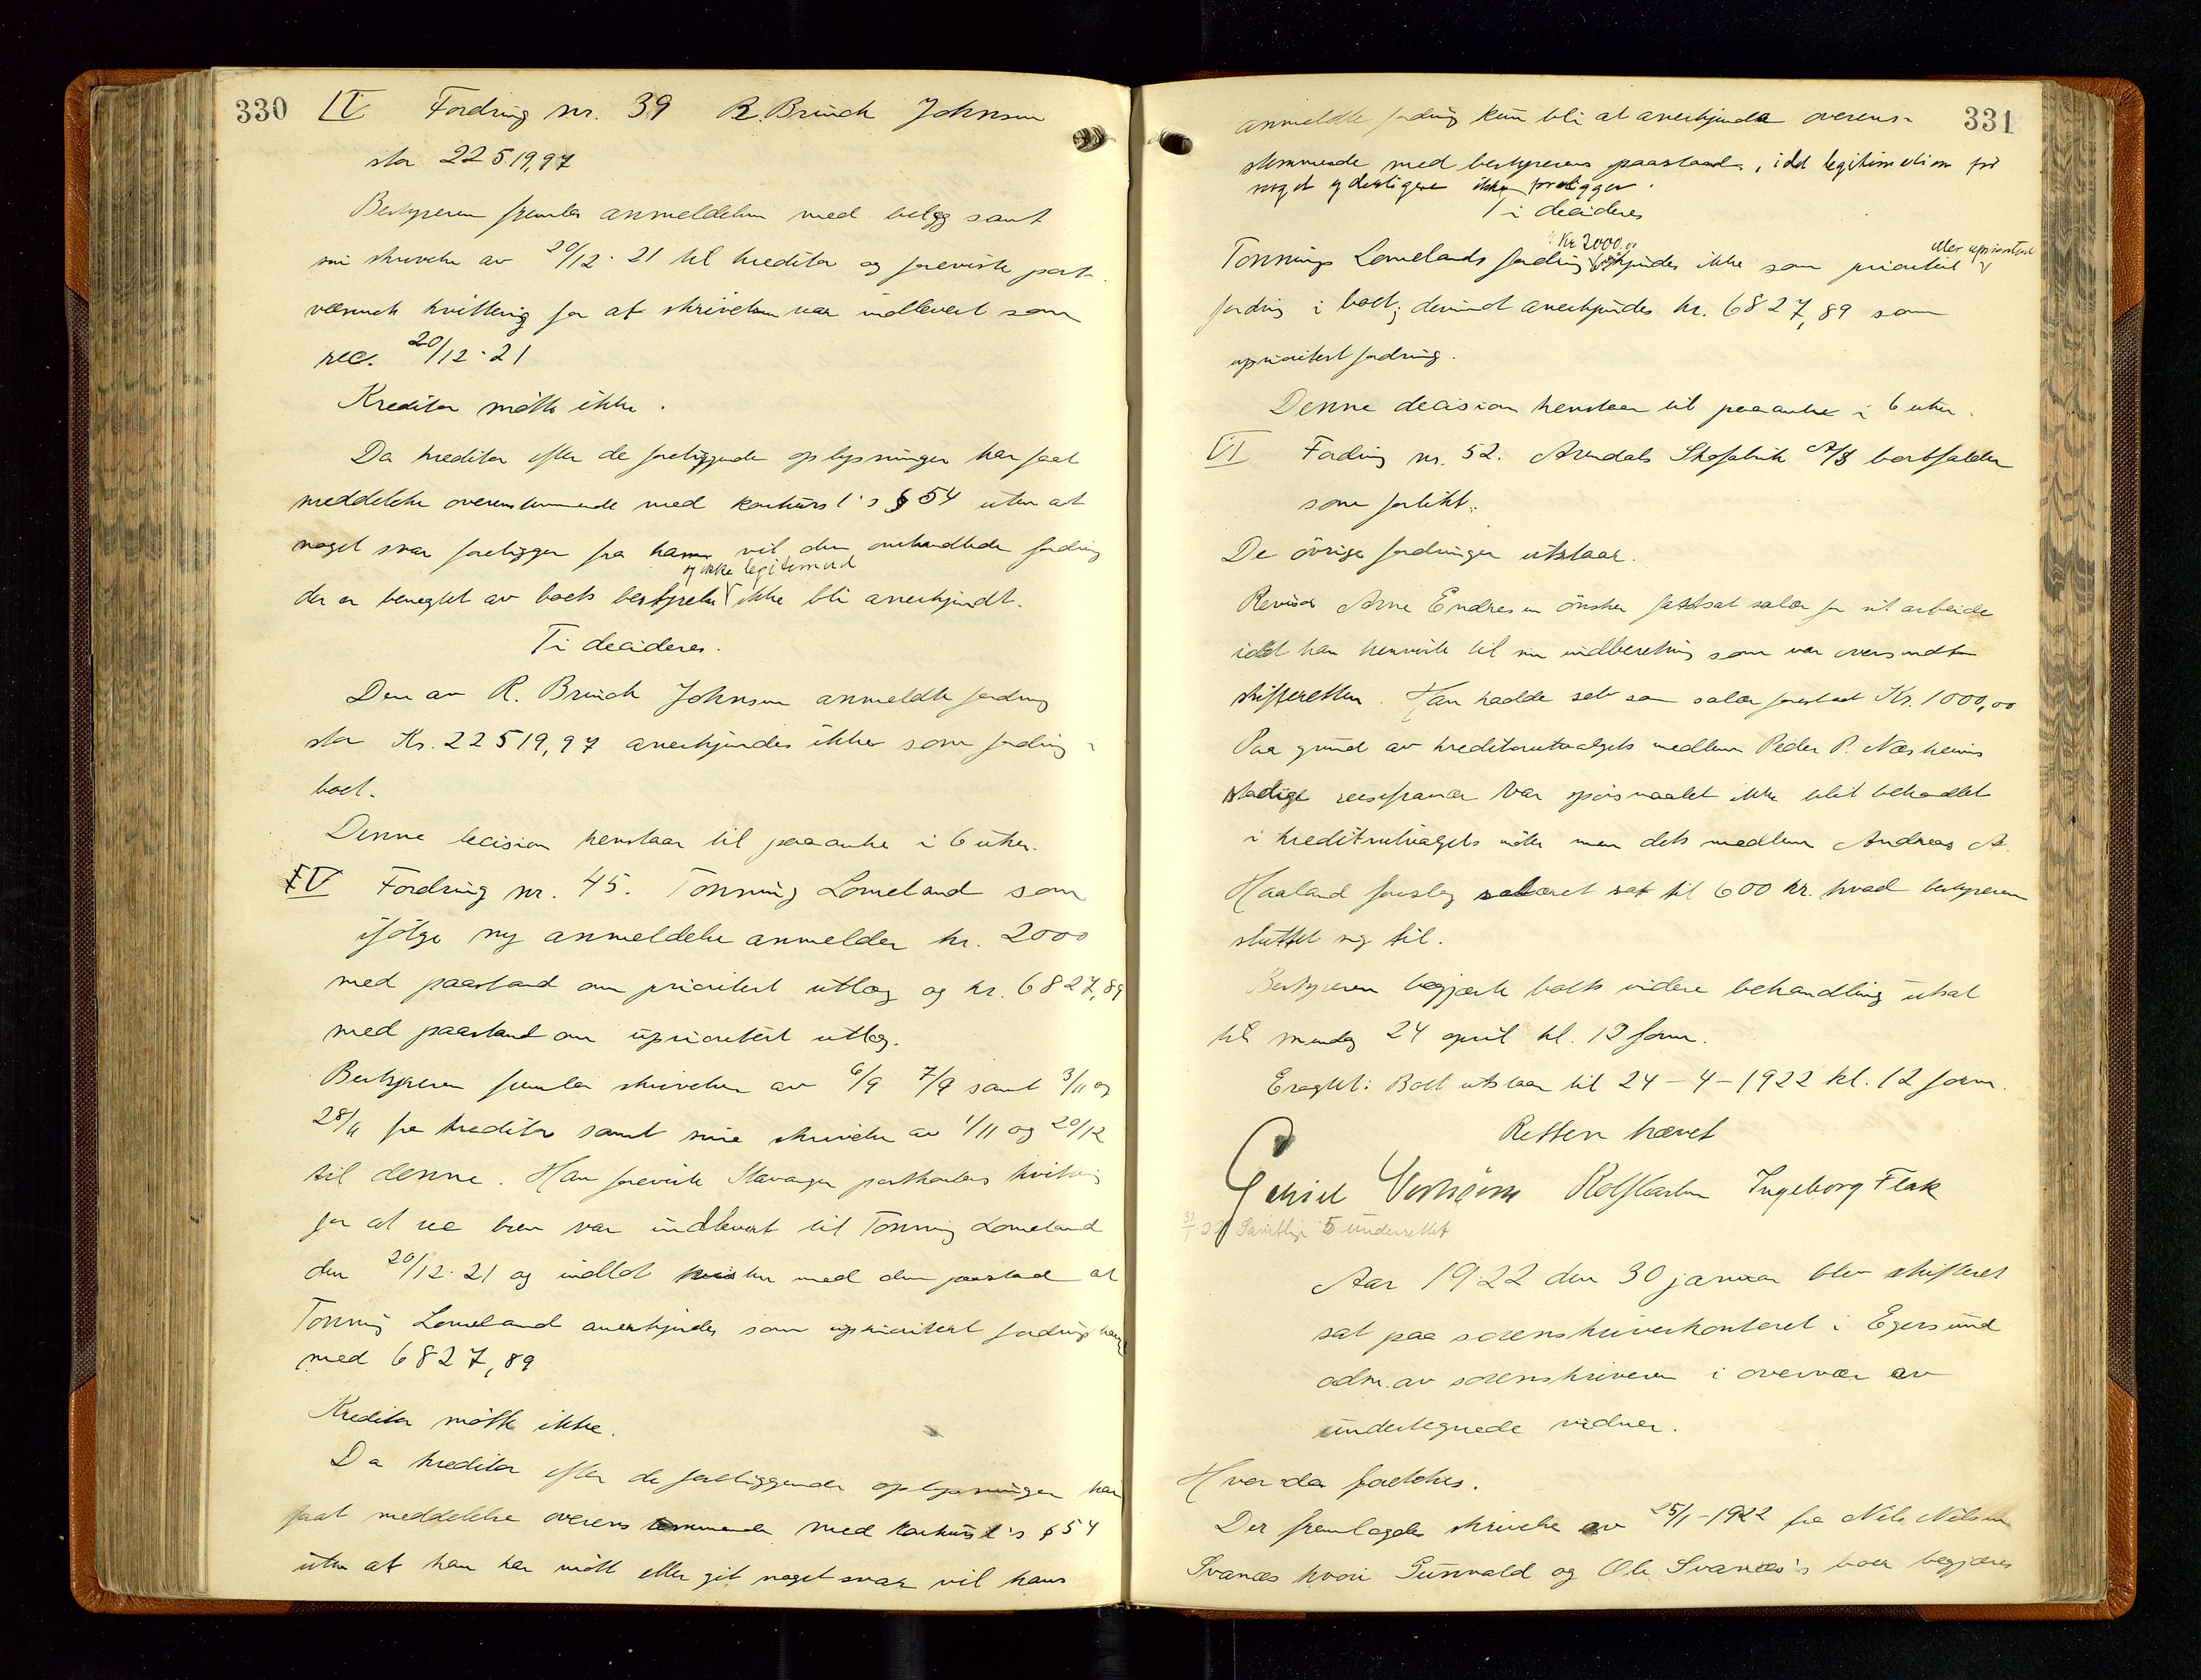 330 IV Fordring nr. 39 R. Bruch Johnsen
stor 22519,97
Bestyreren fremla anmeldelsen med belæg samt
sin skrivelse av 20/12-21 til kreditor og foreviste post-
væsenets kvittering for at skrivelsen var indlevert som
rec. 20/12-21
Kreditor møtte ikke.
Da kreditor efter de foreliggende oplysninger har faat
meddelelse overensstemmende med konkursl's § 54 uten at
noget svar foreligger fra ham vil den omhandlede fordring
og ikke legitimerd
der er benegtet av boets bestyrelse ikke bli anerkjendt.
Ti decideres.
Den av R. Bruch Johnsen anmeldte fordring
stor Kr. 22519,97 anerkjendes ikke som fordring i
boet.
Denne decision henstaar til paaanke i 6 uker.
V Fordring nr. 45. Tønning Lomeland som
ifølge ny anmeldelse anmelder kr. 2000
med paastand om prioritert utlæg og kr. 6827,89
med paastand om uprioritert utlæg.
Bestyreren fremla skrivelser av 6/9 7/9 samt 3/11 og
28/11 fra kreditor samt sine skrivelser av 1/11 og 20/12
til denne. Han foreviste Stavanger postkontors kvittering
for at rec brev var indlevert til Tønning Lomeland
den 20/12-21 og indlot saken med den paastand at
Tønning Lomeland anerkjendes som uprioritert fordringshaver
med 6827,89
Kreditor møtte ikke.
Da kreditor efter de foreliggende oplysninger har
faat meddelelse overensstemmende med konkursl's § 54
uten at han har møtt eller git noget svar vil hans
331
anmeldte fordring kun bli at anerkjende overens-
stemmende med bestyrerens paastand, idet legitimation for
noget yderligere ikke foreligger.
Ti decideres
Kr 2000.00 eller uprioritert
Tønnings Lomelands fordring anerkjendes ikke som prioritert
fordring i boet; derimot anerkjendes kr. 6827,89 som
uprioritert fordring.
Denne decision henstaar til paaanke i 6 uker.
VI Fordring nr. 52. Arendals Skofabrik A/S bortfalder
som forlikt.
De øvrige fordringer utstaar.
Revisor Arne Endresen ønsker fastsat salær for sit arbeide
idet han henviste til sin indberetning som var oversendt
skifteretten. Han hadde selv som salær foreslaat Kr. 1000,00
Paa grund av kreditorutvalgets medlem Peder P. Næsheims
stadige reisefravær var spørsmaalet ikke blit behandlet
i kreditorutvalgets møte men dets medlem Andreas A.
Haaland foreslog salæret sat til 600 kr. hvad bestyreren
sluttet sig til.
Bestyreren begjærte boets videre behandling utsat
til mandag 24 april kl. 12 form.
Eragtet: Boet utstaar til 24-4-1922 kl. 12 form.
Retten hævet
Ingeborg Flak
Samtlige 5 underrettet
Aar 1922 den 30 januar blev skifteret
sat paa sorenskriverkontoret i Egersund
adm. av sorenskriveren i overvær av
undertegnede vidner.
Hvor da foretokes.
Der fremlagdes skrivelse av 25/1-1922 fra Nils Nilsen
Svanæs hvori Gunvald og Ole Svanæs's boer begjæres